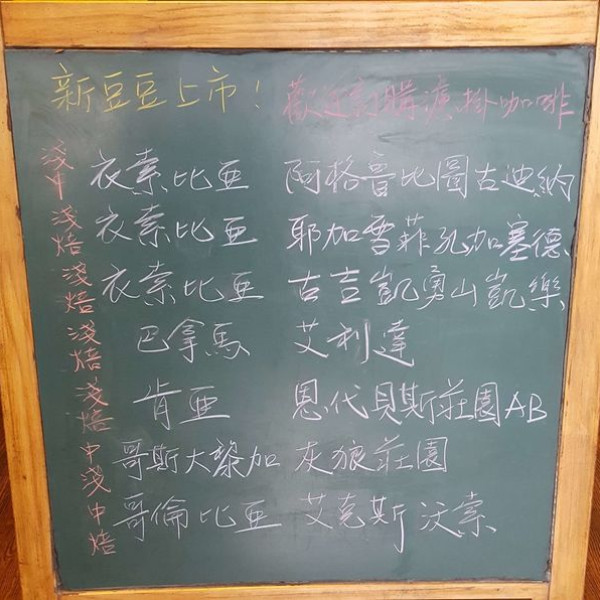 新豆豆上市！ 歡迎訂購濾掛咖啡
淺中 衣索比亞 阿格魯比圖古迪納
淺焙 衣索比亞 耶加雪菲孔加塞德
淺焙 衣索比亞 古吉凱勇山凱樂
淺焙 巴拿馬 艾利達
淺焙 肯亞 恩代貝斯莊園AB
中淺 哥斯大黎加 灰狼莊園
中焙 哥倫比亞 艾克斯沃索